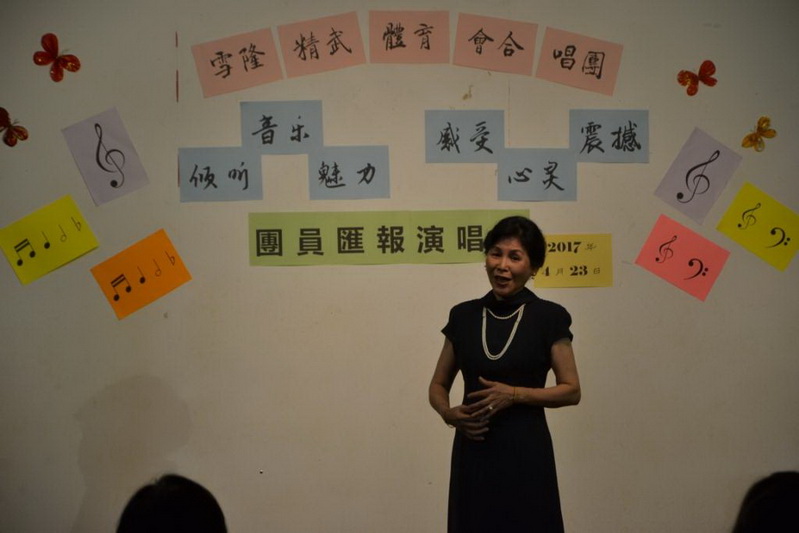 雪隆精武體育會合唱團
音乐 感受 震撼
倾听 魅力 心灵
團員匯報演唱
2017年
4月23日